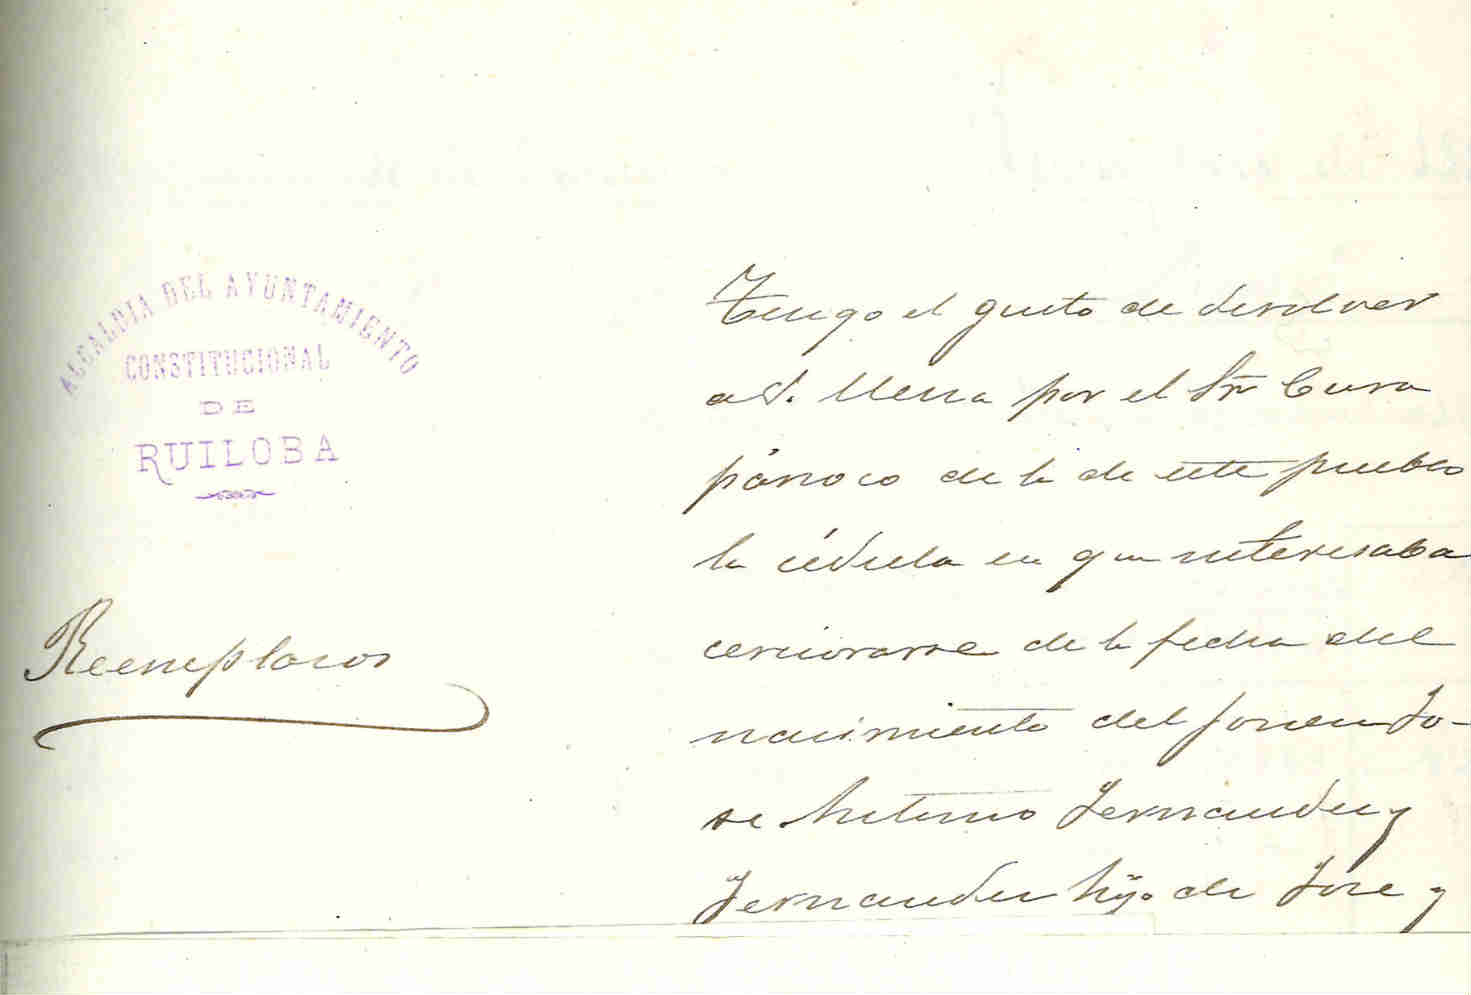 ALCALDIA DEL AYUNTAMIENTO
CONSTITUCIONAL
DE
RUILOBA
Reemplazos
Tengo el gusto de devolver
a V. llena por el Sr Cura
párroco de la de este pueblo
la cédula en que interesaba
cerciorarse de la fecha del
nacimiento del joven Jo-
se Antonio Fernandez y
Fernandez hijo de Jose y